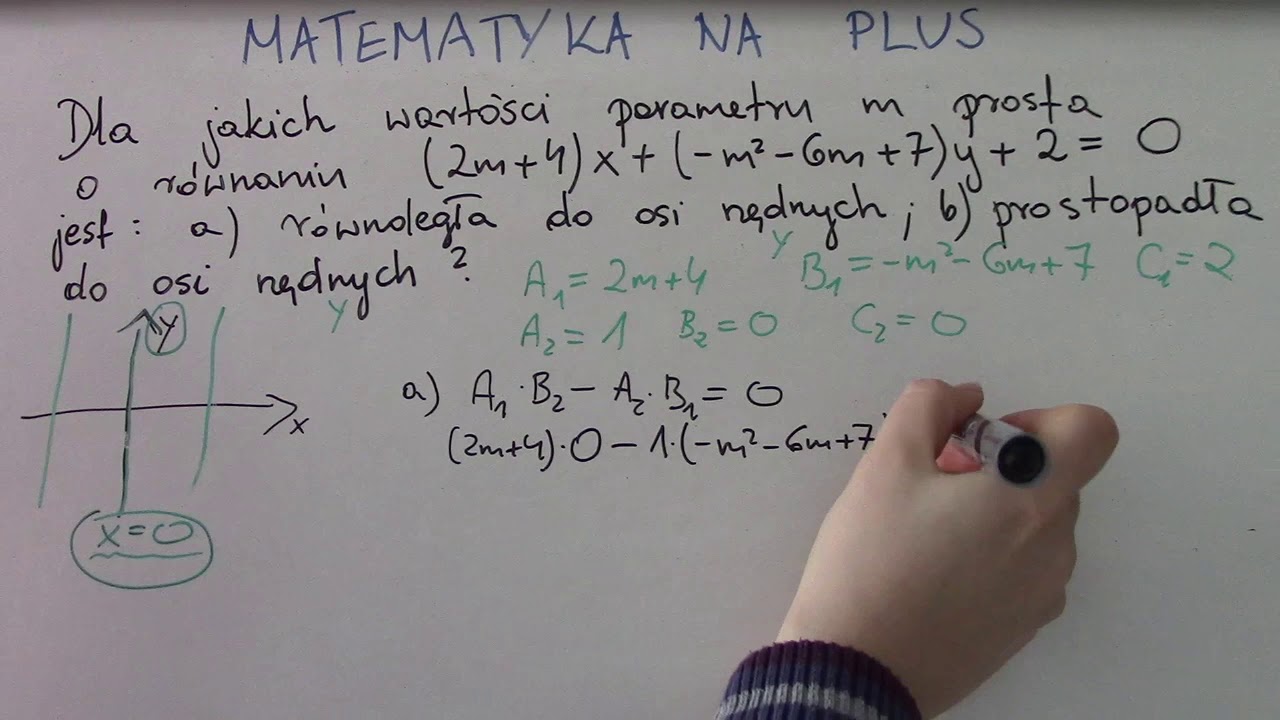 MATEMATYKA NA PLUS
Dla jakich wartości parametru m prosta
o równaniu (2m+4)x+(-m²-6m+7)y+2=0
jest: a) równoległa do osi rzędnych; b) prostopadła
y
do osi rzędnych?
y
A₁=2m+4 B₁=-m²-6m+7 C₁=2
A₂=1 B₂=0 C₂=0
y
x
x=0
a) A₁·B₂-A₂·B₁=0
(2m+4)·0-1·(-m²-6m+7